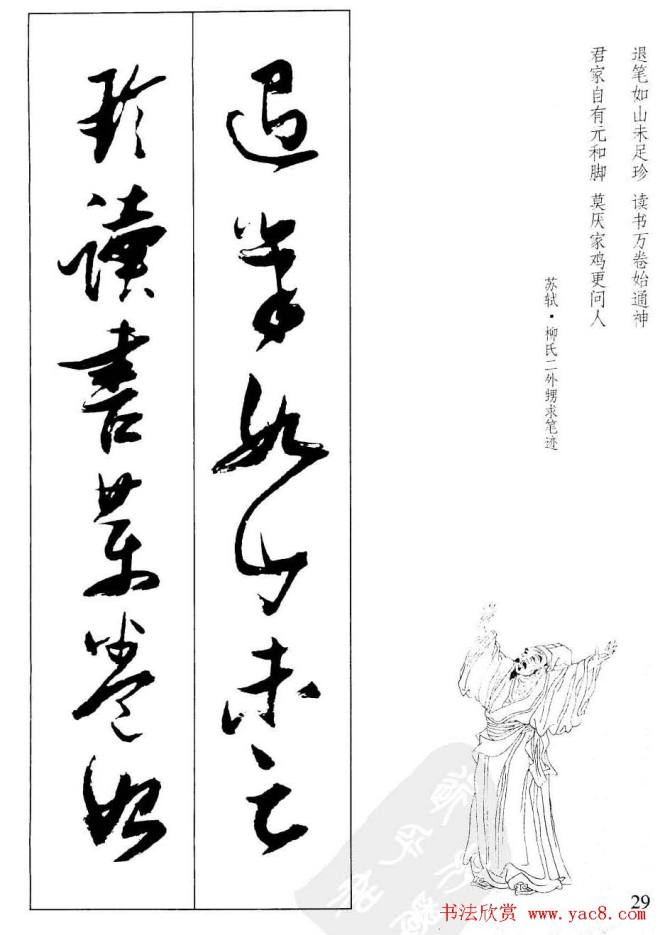 退笔如山未足珍 读书万卷始通神
君家自有元和脚 莫厌家鸡更问人
苏轼·柳氏二外甥求笔迹
退筆如山未足
珍讀書萬卷始
29
书法欣赏 www.yac8.com